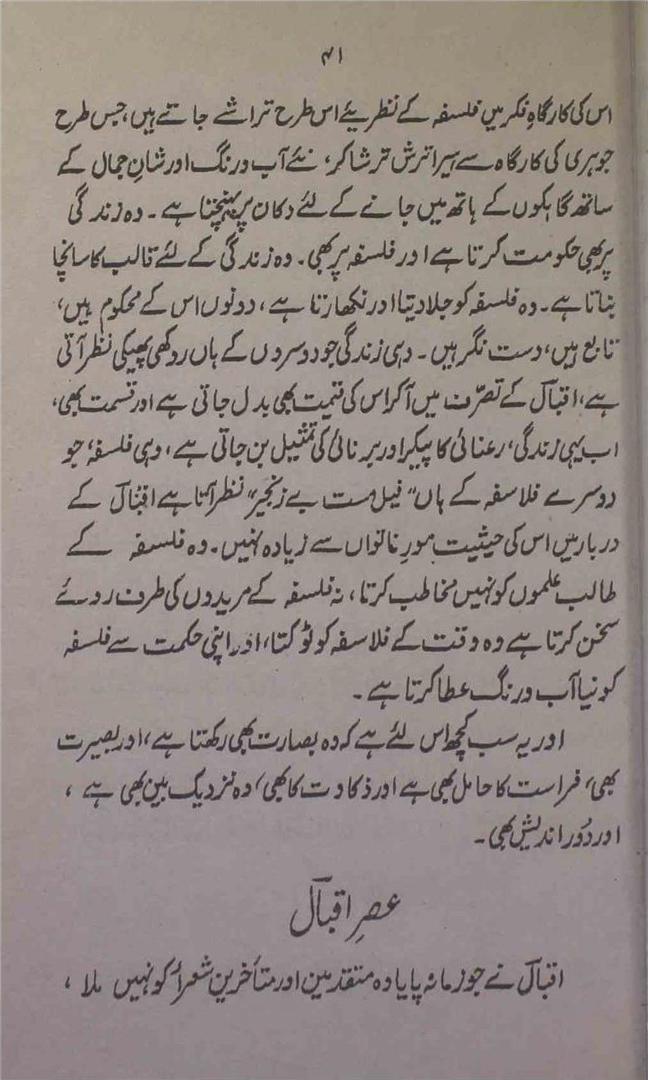 ۴۱
اس کی کارگاہِ فکر میں فلسفہ کے نظریئے اس طرح تراشے جاتے ہیں، جس طرح
جوہری کی کارگاہ سے ہیرا ترش ترشا کر، نئے آب و رنگ اور شانِ جمال کے
ساتھ گاہکوں کے ہاتھ میں جانے کے لئے دکان پر پہنچتا ہے۔ وہ زندگی
پر بھی حکومت کرتا ہے اور فلسفہ پر بھی۔ وہ زندگی کے لئے قالب کا سانچا
بناتا ہے۔ وہ فلسفہ کو جلا دیتا اور نکھارتا ہے، دونوں اس کے محکوم ہیں،
تابع ہیں، دست نگر ہیں۔ وہی زندگی جو دوسروں کے ہاں روکھی پھیکی نظر آتی
ہے، اقبالؔ کے تصرّف میں آکر اس کی قیمت بھی بدل جاتی ہے اور قسمت بھی،
اب یہی زندگی، رعنائی کا پیکر اور برنائی کی تمثیل بن جاتی ہے، وہی فلسفہ، جو
دوسرے فلاسفہ کے ہاں "فیل مست بے زنجیر" نظر آتا ہے اقبالؔ کے
دربار میں اس کی حیثیت مورِ ناتواں سے زیادہ نہیں۔ وہ فلسفہ کے
طالب علموں کو نہیں مخاطب کرتا، نہ فلسفہ کے مریدوں کی طرف روئے
سخن کرتا ہے وہ وقت کے فلاسفہ کو ٹوکتا، اور اپنی حکمت سے فلسفہ
کو نیا آب و رنگ عطا کرتا ہے۔
اور یہ سب کچھ اس لئے ہے کہ وہ بصارت بھی رکھتا ہے، اور بصیرت
بھی، فراست کا حامل بھی ہے اور ذکاوت کا بھی، وہ نزدیک بین بھی ہے،
اور دُور اندیش بھی۔
عصرِ اقبالؔ
اقبالؔ نے جو زمانہ پایا وہ متقدمین اور متأخرین شعراء کو نہیں ملا،